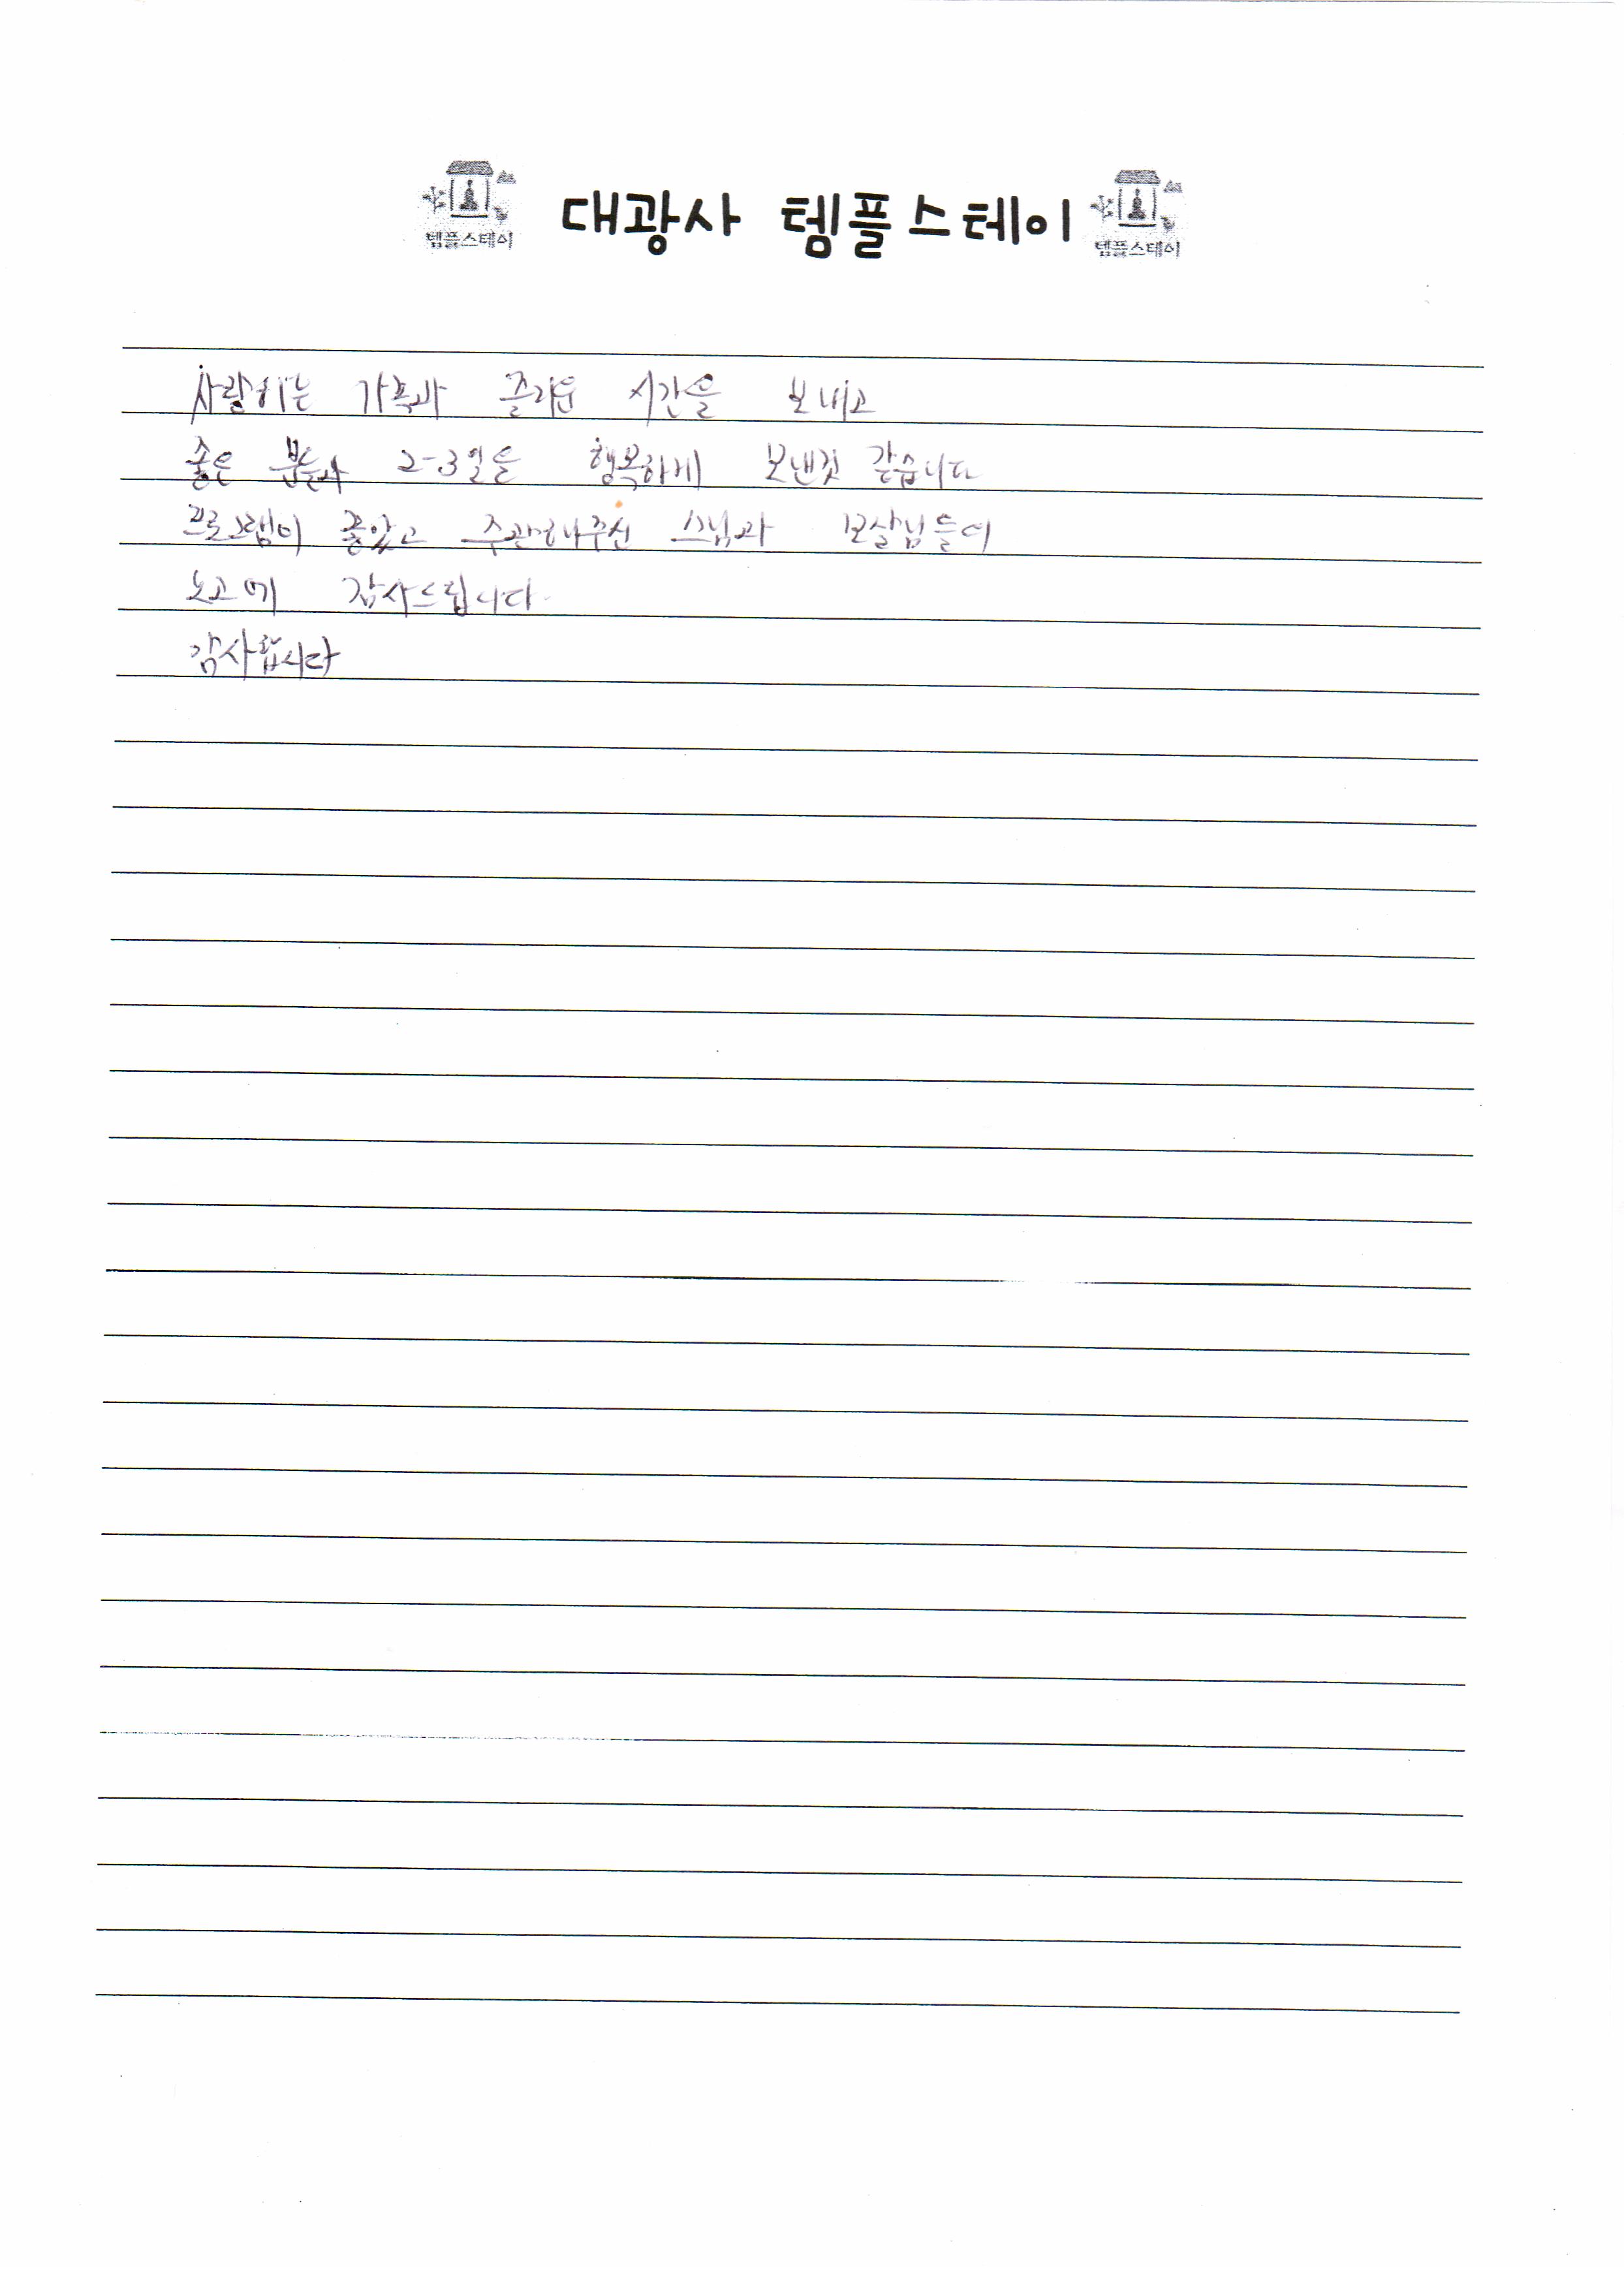 템플스테이 대광사 템플스테이 템플스테이
사랑하는 가족과 즐거운 시간을 보내고
좋은 분들과 2-3일을 행복하게 보낸것 같습니다
프로그램이 좋았고 주관해주신 스님과 보살님들의
노고에 감사드립니다.
감사합니다